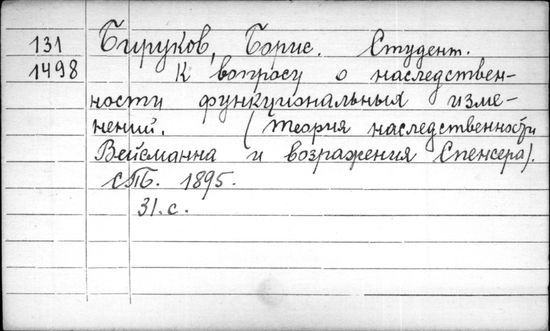 131 Бируков, Борис. Студент.
1498 К вопросу о наследствен-
ности функциональных изме-
нений. (Теория наследственности
Вейсманна и возражения Спенсера).
СПБ. 1895.
31.с.